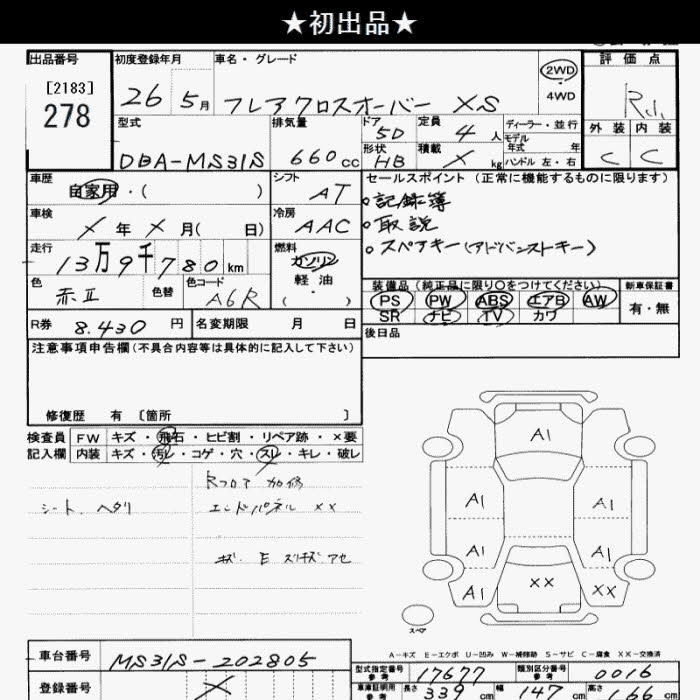 ★初出品★
出品番号 初度登録年月 車名・グレード 評価点
[2183]
278
26 5月 フレアクロスオーバー XS 2WD 4WD
型式 排気量 ドア 5D 定員 4人 ディーラー・並行 外装 内装
モデル年式 年
DBA-MS31S 660cc 形状 HB 積載 × kg ハンドル 左・右 C C
車歴 自家用・( ) シフト AT セールスポイント(正常に機能するものに限ります)
車検 × 年 × 月( 日) 冷房 AAC
○記録簿
○取説
○スペアキー(アドバンストキー)
走行 13万9千780km 燃料 ガソリン 軽油 ( ・ )
色 赤II 色替 色コード A6R
装備品(純正品に限り○をつけてください) 新車保証書
PS PW ABS エアB AW 有・無
SR ナビ TV カワ
R券 8.430円 名変期限 月 日 後日品
注意事項申告欄(不具合内容等は具体的に記入して下さい)
修復歴 有 〔箇所 〕
検査員 FW キズ・飛石・ヒビ割・リペア跡・×要
記入欄 内装 キズ・汚レ・コゲ・穴・スレ・キレ・破レ
Rフロア 加修
シート、ヘタリ エンドパネル ××
キズ E スリキズ アセ
A1
A1 A1
A1 A1
A1 ×× ××
スペア
A−キズ E−エクボ U−凹み W−補修跡 S−サビ C−腐食 XX−交換済
車台番号 MS31S-202805
型式指定番号 参考 17677 類別区分番号 参考 0016
登録番号 ×
車庫証明用 参考 長さ 339cm 幅 147cm 高さ 166cm